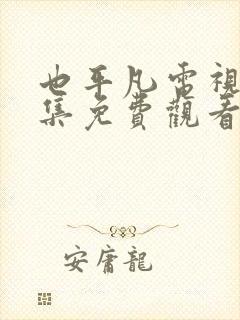 也平凡電視
集免費觀看
安庸龍